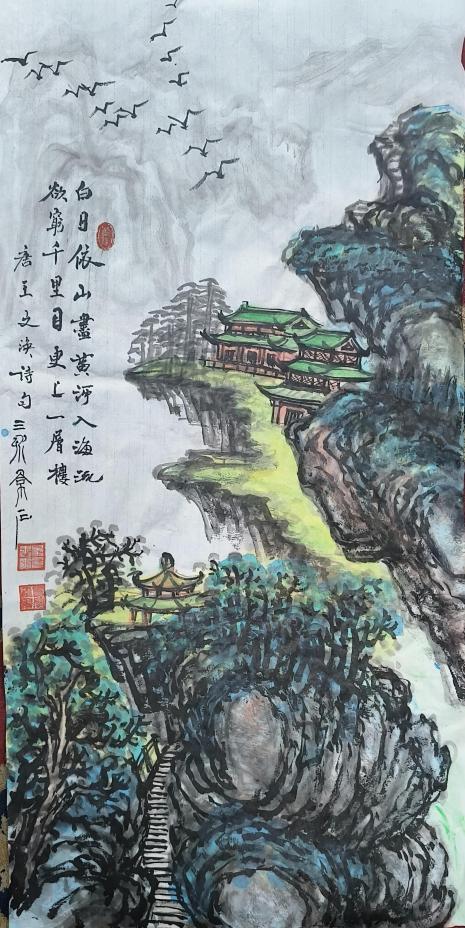 白日依山盡黃河入海流
欲窮千里目更上一層樓
唐王之渙詩句